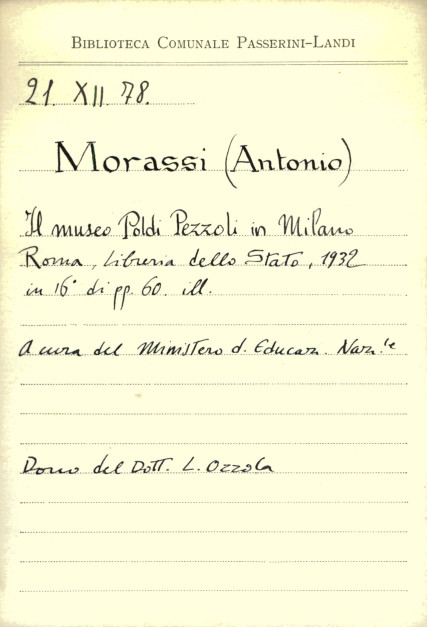 BIBLIOTECA COMUNALE PASSERINI-LANDI
21. XII. 78.
Morassi (Antonio)
Il museo Poldi Pezzoli in Milano
Roma, Libreria dello Stato, 1932
in 16° di pp. 60. ill.
A cura del Ministero d. Educaz. Naz.le
Dono del Dott. L. Ozzola